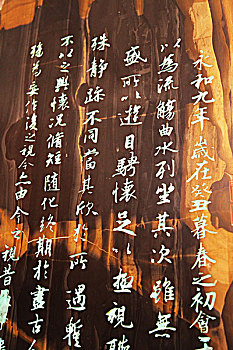 永和九年歲在癸丑暮春之初會
以為流觴曲水列坐其次雖無
盛所以遊目騁懷足以極視聽
殊靜躁不同當其欣於所遇暫
不以之興懷况脩短隨化終期於盡古人
殤為妄作後之視今亦由今之
視昔